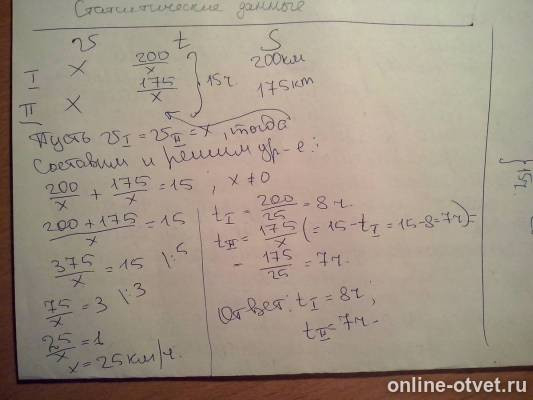 Статистические данные
v t S
I x 200/x 200км
II x 175/x } 15ч. 175км
Пусть vI = vII = x, тогда
Составим и решим ур-е:
200/x + 175/x = 15 ; x ≠ 0
(200+175)/x = 15
375/x = 15 |:5
75/x = 3 |:3
25/x = 1
x = 25 км/ч.
tI = 200/25 = 8 ч.
tII = 175/x (= 15 - tI = 15-8 = 7ч) =
- 175/25 = 7ч.
Ответ: tI = 8ч ;
tII = 7ч.
online-otvet.ru